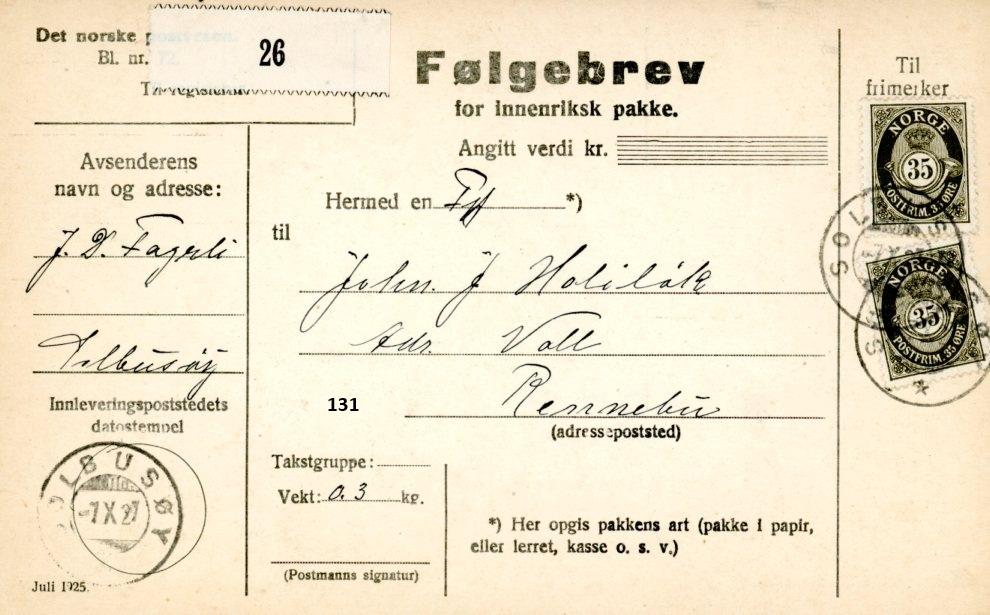 Det norske postvesen.
Bl. nr. 72.
26
Følgebrev
for innenriksk pakke.
Angitt verdi kr.
Til
frimerker
NORGE
35
POSTFRIM. 35 ØRE
NORGE
35
POSTFRIM. 35 ØRE
Avsenderens
navn og adresse:
J. D. Fagerli
Solbusøy
Hermed en *)
til
John. J Holiløk
Adr. Voll
131 Rennebu
(adressepoststed)
Innleveringspoststedets
datostempel
SOLBUSØY
-7 X 27
Takstgruppe:
Vekt: 0.3 kg.
(Postmanns signatur)
*) Her opgis pakkens art (pakke i papir,
eller lerret, kasse o. s. v.)
Juli 1925.